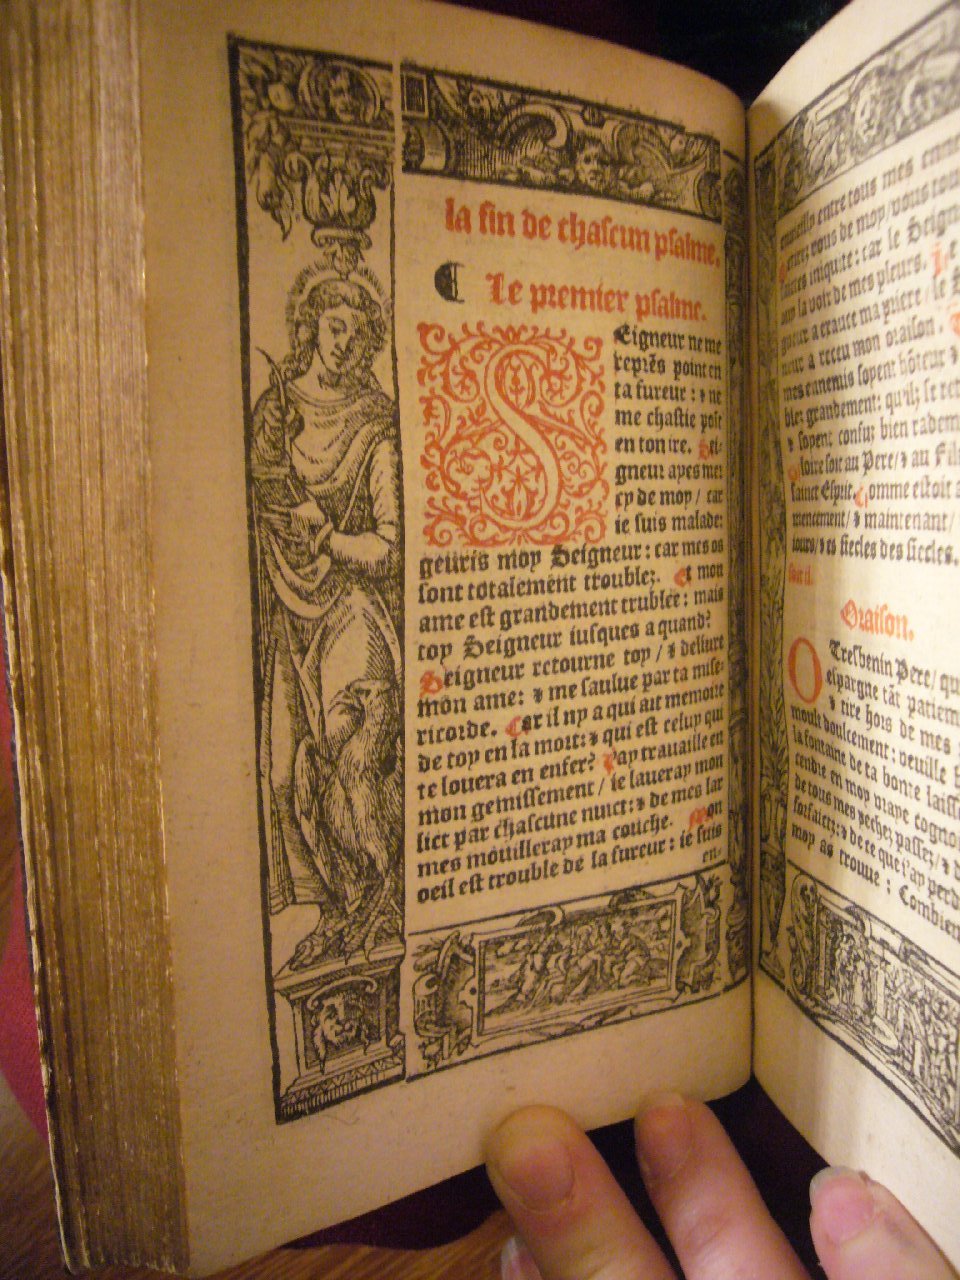 la fin de chascun psalme.
Le premier psalme.
Seigneur ne me
reprēs point en
ta fureur : & ne
me chastie poīt
en ton ire. Sei-
gneur ayes mer
cy de moy / car
ie suis malade:
gueuris moy Seigneur : car mes os
sont totalement troublez. Et mon
ame est grandement trublee : mais
toy Seigneur iusques a quand?
Seigneur retourne toy / & deliure
mon ame : & me saulue par ta mise-
ricorde. Car il ny a qui ait memoire
de toy en la mort: & qui est celuy qui
te louera en enfer? J'ay trauaille en
mon gemissement / ie laueray mon
lict par chascune nuict: & de mes lar
mes mouilleray ma couche. Mon
oeil est trouble de la fureur : ie suis
en-
enuieilly entre tous mes enne
de moy / vous tou
iniquite: car le Seign
la voix de mes pleurs. Le
a exauce ma priere / le S
a receu mon oraison.
mes ennemis soyent hōteux &
blez grandement: qu'ilz se ret
& soyent confuz bien
Gloire soit au Pere / & au Fil
sainct Esprit. Comme estoit a
mencement / & maintenant /
iours / es siecles des siecles.
Oraison.
O Tresbenin Pere / qu
espargne tāt patiem
& tire hors de mes
moult doulcement: veuille
la fontaine de ta bonte laiss
en moy vraye cognoi
de tous mes pechez passez / & d
forfaictz: & de ce que i'ay perd
moy as trouue : Combien